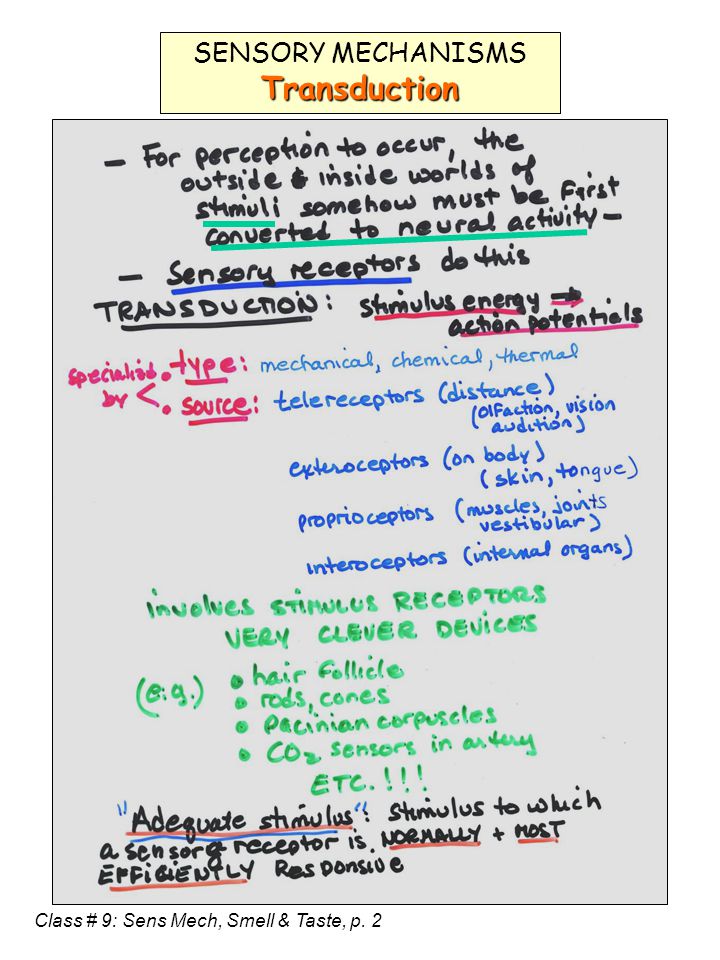 SENSORY MECHANISMS
Transduction
– For perception to occur, the
outside & inside worlds of
stimuli somehow must be first
converted to neural activity –
– Sensory receptors do this
TRANSDUCTION: stimulus energy →
action potentials
specialized by < • type: mechanical, chemical, thermal
• source: telereceptors (distance)
(olfaction, vision
audition)
exteroceptors (on body)
(skin, tongue)
proprioceptors (muscles, joints
vestibular)
interoceptors (internal organs)
involves STIMULUS RECEPTORS
VERY CLEVER DEVICES
(e.g.) • hair follicle
• rods, cones
• Pacinian corpuscles
• CO₂ sensors in artery
ETC.!!!
"Adequate stimulus": stimulus to which
a sensory receptor is NORMALLY + MOST
EFFICIENTLY RESPONSIVE
Class # 9: Sens Mech, Smell & Taste, p. 2